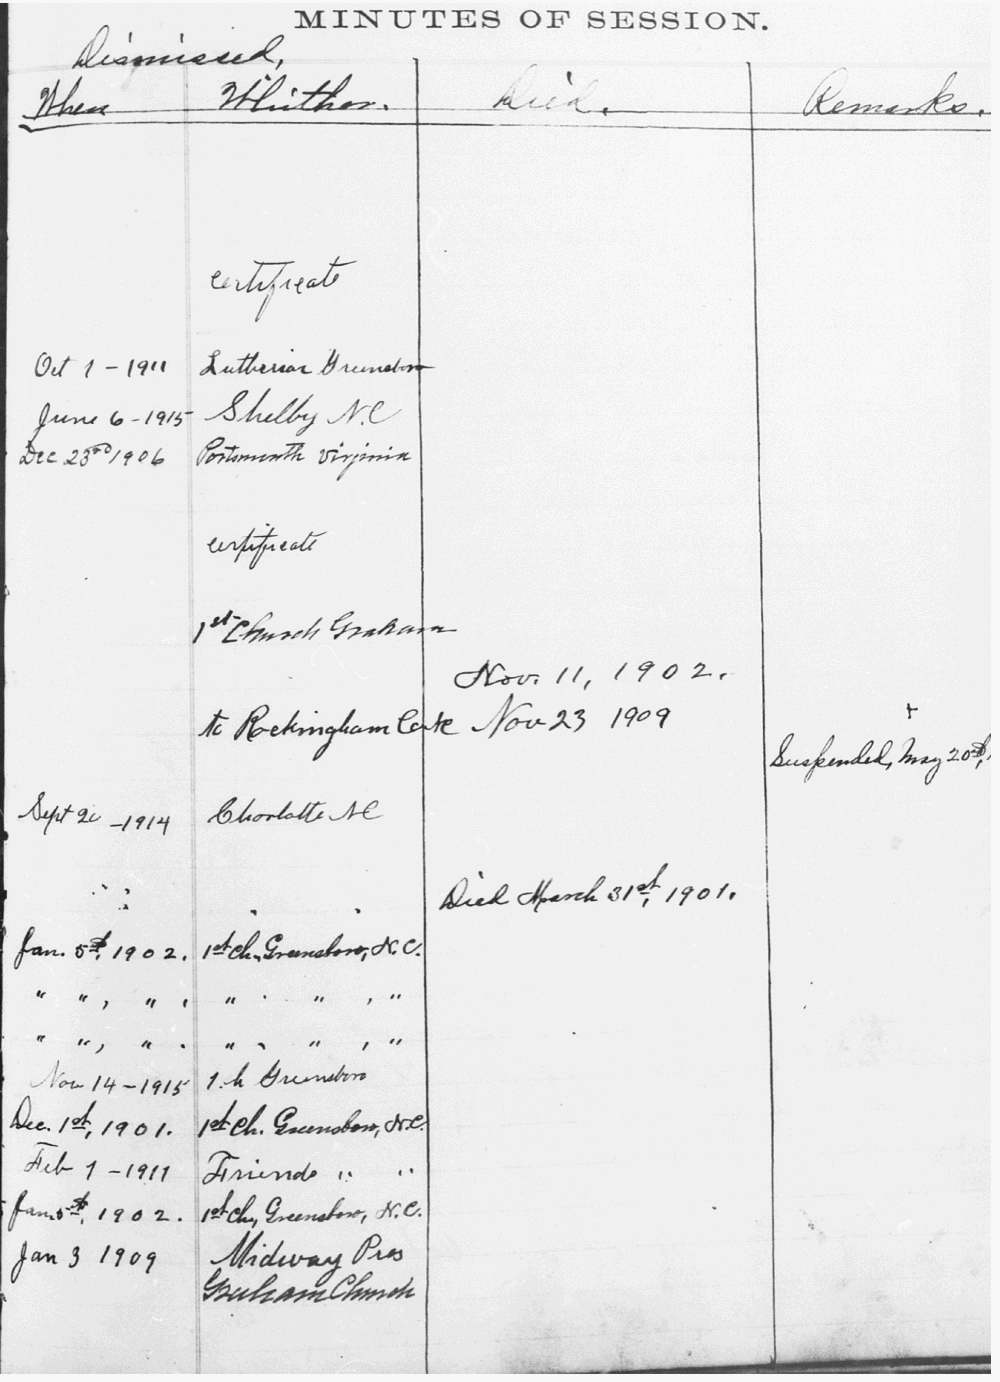 MINUTES OF SESSION.
Dismissed,
When Whither. Died. Remarks.
certificate
Oct 1 - 1911 Lutheran Greensboro
June 6 - 1915 Shelby N.C
Dec 23rd 1906 Portsmouth Virginia
certificate
1st Church Graham
Nov. 11, 1902.
to Rockingham Nov 23 1909 +
Suspended, May 20th,
Sept 20 - 1914 Charlotte NC
Died March 31st, 1901.
Jan. 5th, 1902. 1st ch., Greensboro, N.C.
" ", " . " . " , "
" ", " . " . " , "
Nov 14 - 1915 Greensboro
Dec. 1st, 1901. 1st Ch. Greensboro, N.C.
Feb 1 - 1911 Friends " "
Jan. 5th, 1902. 1st Ch., Greensboro, N.C.
Jan 3 1909 Midway Pres
Graham Church